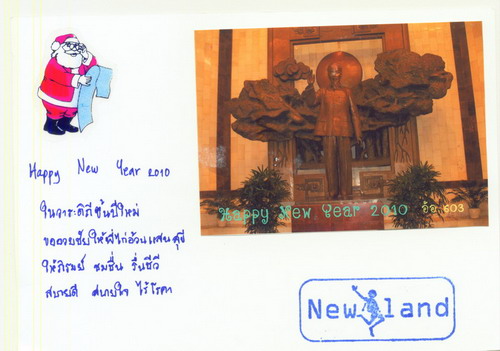 Happy New Year 2010
ในวาระดิถีขึ้นปีใหม่
ขออวยชัยให้พี่ไก่อ้วนแสนสุขี
ให้ภิรมย์ ชมชื่น รื่นชีวี
สบายดี สบายใจ ไร้โรคา
Happy New Year 2010 อ้อ 603
New land